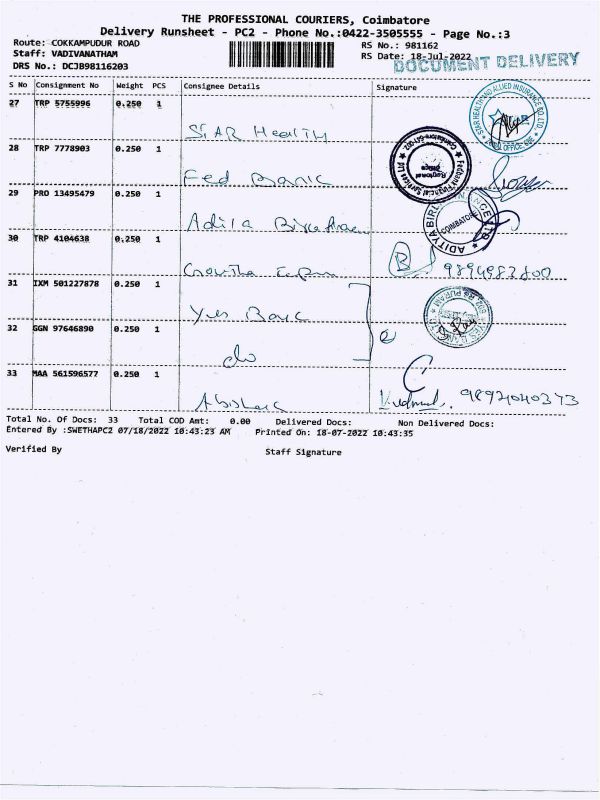 THE PROFESSIONAL COURIERS, Coimbatore
Delivery Runsheet - PC2 - Phone No.:0422-3505555 - Page No.:3
Route: COKKAMPUDUR ROAD
RS No.: 981162
Staff: VADIVANATHAM
RS Date: 18-Jul-2022
DRS No.: DCJB98116203
DOCUMENT DELIVERY
S No Consignment No Weight PCS Consignee Details Signature
27 TRP 5755996 0.250 1
STAR HEALTH AND ALLIED INSURANCE CO. LTD.
STAR Health
28 TRP 7778903 0.250 1
Fedbank Financial Services Ltd
Fed Bank
29 PRO 13495479 0.250 1
Aditya Birla
COIMBATORE
30 TRP 4104638 0.250 1
B
31 IXM 501227878 0.250 1
Yes Banc
32 GGN 97646890 0.250 1
do
33 MAA 561596577 0.250 1
Total No. Of Docs: 33 Total COD Amt: 0.00 Delivered Docs: Non Delivered Docs:
Entered By :SWETHAPC2 07/18/2022 10:43:23 AM Printed On: 18-07-2022 10:43:35
Verified By Staff Signature